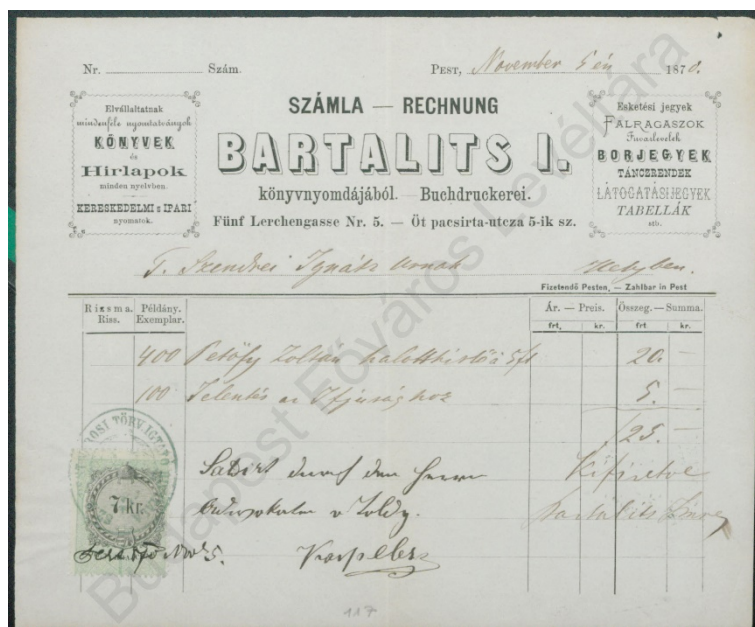 Nr. Szám. PEST, November 5 én 1870.
Elvállaltatnak
mindenféle nyomtatványok
KÖNYVEK
és
Hirlapok
minden nyelvben.
KERESKEDELMI s IPARI
nyomatok.
SZÁMLA — RECHNUNG
BARTALITS I.
könyvnyomdájából. — Buchdruckerei.
Fünf Lerchengasse Nr. 5. — Öt pacsirta-utcza 5-ik sz.
Esketési jegyek
FALRAGASZOK
Fuvarlevelek
BORJEGYEK
TÁNCZRENDEK
LÁTOGATÁSIJEGYEK
TABELLÁK
stb.
T. Szendrei Ignátz Urnak Helyben.
Fizetendő Pesten, — Zahlbar in Pest
Riksma. Példány. Ár. — Preis. Összeg. — Summa.
Riss. Exemplar. frt. kr. frt kr.
400 Petőfy Zoltán halotthirdő á 5ft 20. —
100 Jelentés az Ifjusághoz 5. —
25. —
durch den Herrn Kifizetve
v Toldy. Bartalits Imre
7 kr.
Budapest Főváros Levéltára
117